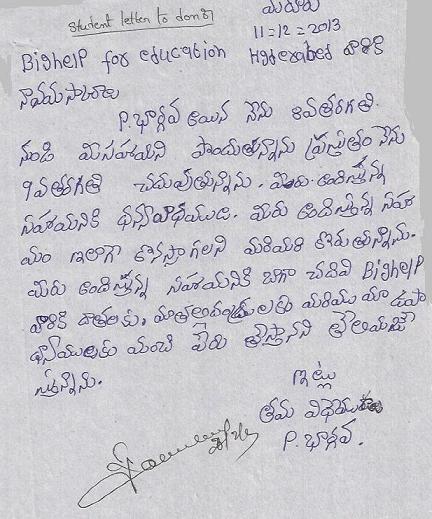 student letter to donor
మదూరు
11-12-2013
BigHelP for education Hyderabad వారికి
నామస్కారాలు
P.భార్గవ అయిన నేను 8వతరగతి
నుండి మీసహాయని పొందుతున్నాను ప్రస్తుతం నేను
9వతరగతి చదువుతున్నాను. మీరు అందిస్తున్న
సహాయనికి ధన్యవాధములు. మీరు అందిస్తున్న సహా
యం ఇలాగే కొనసాగాలని మరిమరి కోరుతున్నాను.
మీరు అందిస్తున్న సహాయనికి బాగా చదివి BigHelP
వారికి దాతలకు, మాతలదండ్రులకు మరియు మా ఉపా
ధ్యాయులకు మంచి పేరు తెస్తానని తెలియజే
స్తున్నాను.
ఇట్లు
తమ విధేయుడు
P.భార్గవ.